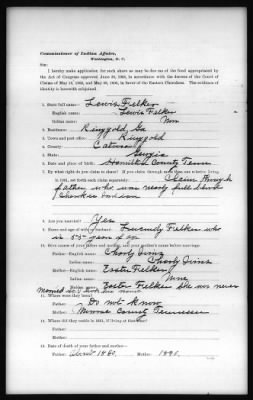 Commissioner of Indian Affairs,
Washington, D. C.
Sir:
I hereby make application for such share as may be due me of the fund appropriated by
the Act of Congress approved June 30, 1906, in accordance with the decrees of the Court of
Claims of May 18, 1905, and May 28, 1906, in favor of the Eastern Cherokees. The evidence of
identity is herewith subjoined.
1. State full name— Lewis Felker
English name: Lewis Felker
Indian name: Non
2. Residence: Ringgold Ga
3. Town and post office: Ringgold
4. County: Catoosa
5. State: Georgia
6. Date and place of birth: Hamilton County Tenn
7. By what right do you claim to share? If you claim through more than one relative living
in 1851, set forth each claim separately: Claim through
father who was nearly full blood
Cherokee Indian
8. Are you married? Yes
9. Name and age of wife or husband: Felker who
is 55 years of age
10. Give names of your father and mother, and your mother's name before marriage.
Father—English name:
Indian name:
Mother—English name: Ester Felker
Indian name: None
Maiden name: Ester Felker She was never
married
11. Where were they born?
Father: Do not know
Mother: Monroe County Tennessee
12. Where did they reside in 1851, if living at that time?
Father:
Mother:
13. Date of death of your father and mother—
Father: About 1860 Mother: 1890